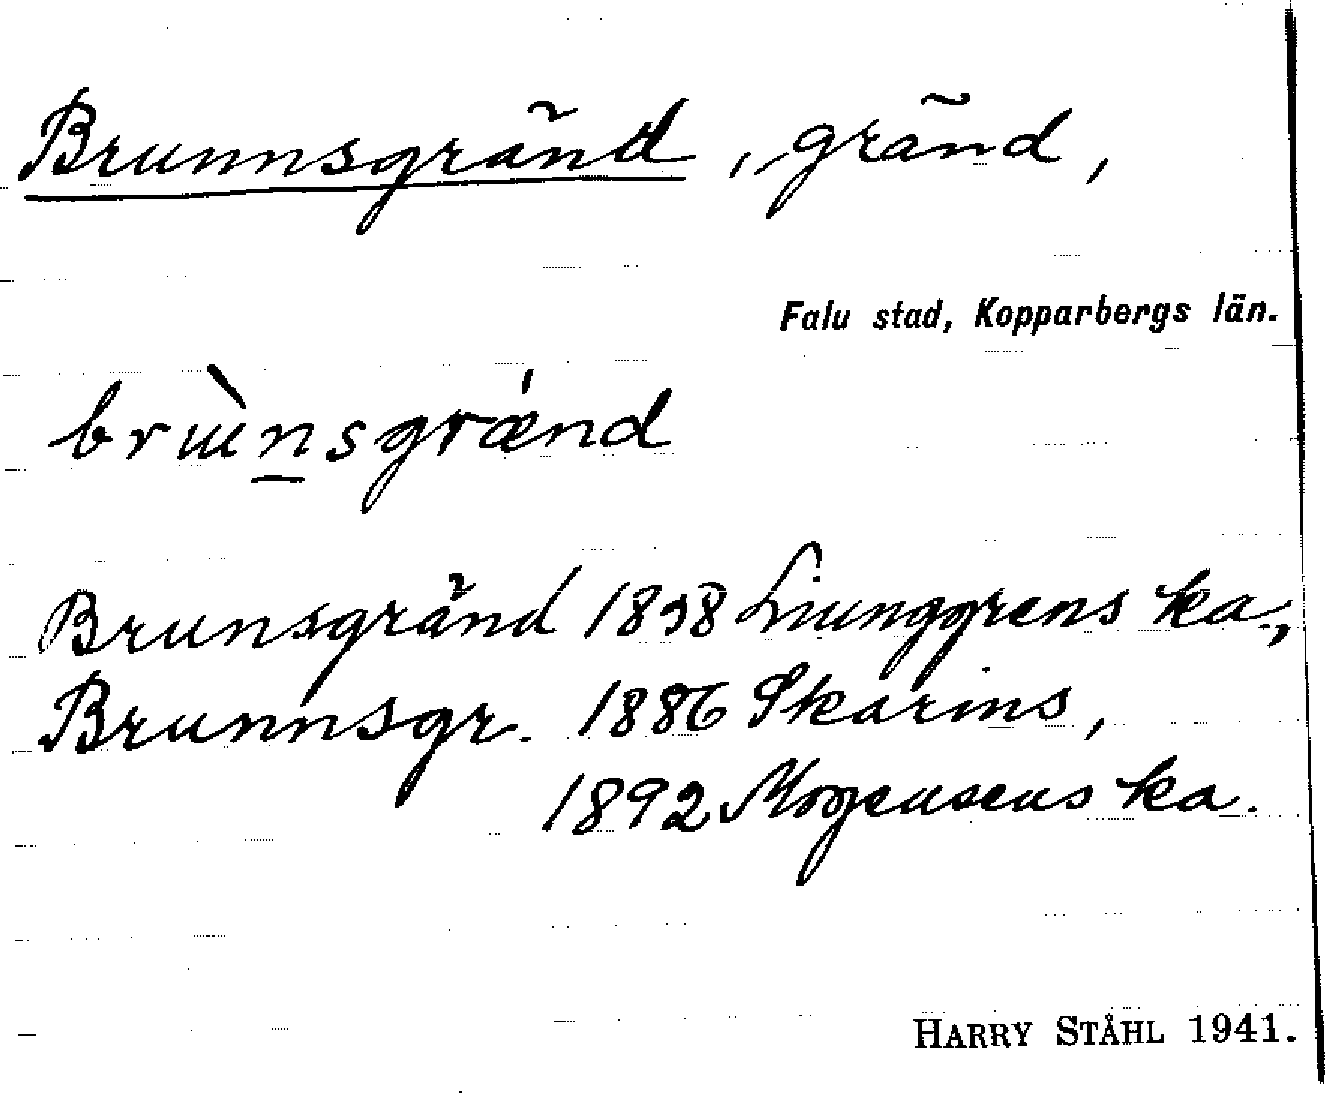 Brunnsgränd, gränd,
Falu stad, Kopparbergs län.
brɯ̀n̠sgrǽnd
Brunsgränd 1838 Ljunggrens ka.,
Brunnsgr. 1886 Skarins,
1892 Mogensens ka.
HARRY STÅHL 1941.